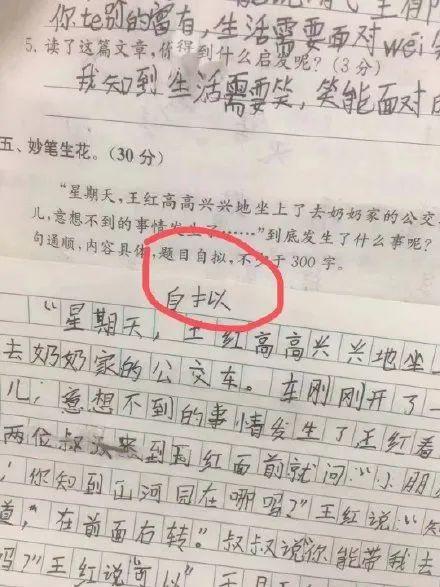 你te别的富有,生活需要面对wei
5. 读了这篇文章,你得到什么启发呢?(3分)
我知到生活需要笑,笑能面对
五、妙笔生花。(30分)
“星期天,王红高高兴兴地坐上了去奶奶家的公交
儿,意想不到的事情发生了……”到底发生了什么事呢?
句通顺,内容具体,题目自拟,不少于300字。
自扌以
“星期天,王红高高兴兴地坐
去奶奶家的公交车。车刚刚开了一
儿,意想不到的事情发生了王红看
两位叔 来到王红面前就问:“小朋
,你知到山河园在哪吗?”王红说:“知
道,“在前面右转。”叔叔说“你能带我去
吗?”王红说